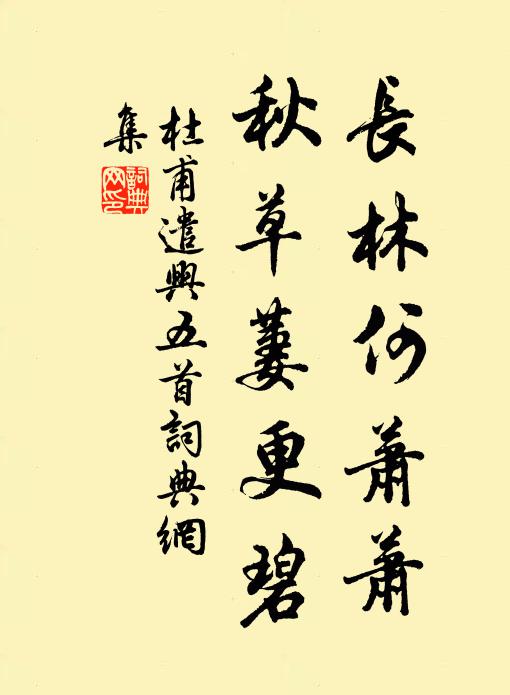 長林何蕭蕭
秋草萋更碧
杜甫遣興五首詞典網
集
詞典
网印